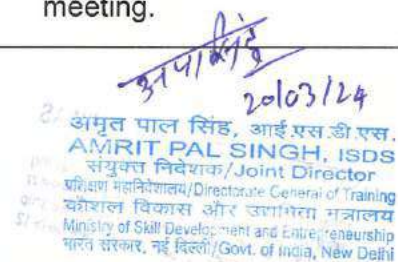 meeting.
20/03/24
अमृत पाल सिंह, आई.एस.डी.एस.
AMRIT PAL SINGH, ISDS
संयुक्त निदेशक/Joint Director
प्रशिक्षण महानिदेशालय/Directorate General of Training
कौशल विकास और उद्यमिता मंत्रालय
Ministry of Skill Development and Entrepreneurship
भारत सरकार, नई दिल्ली/Govt. of India, New Delhi